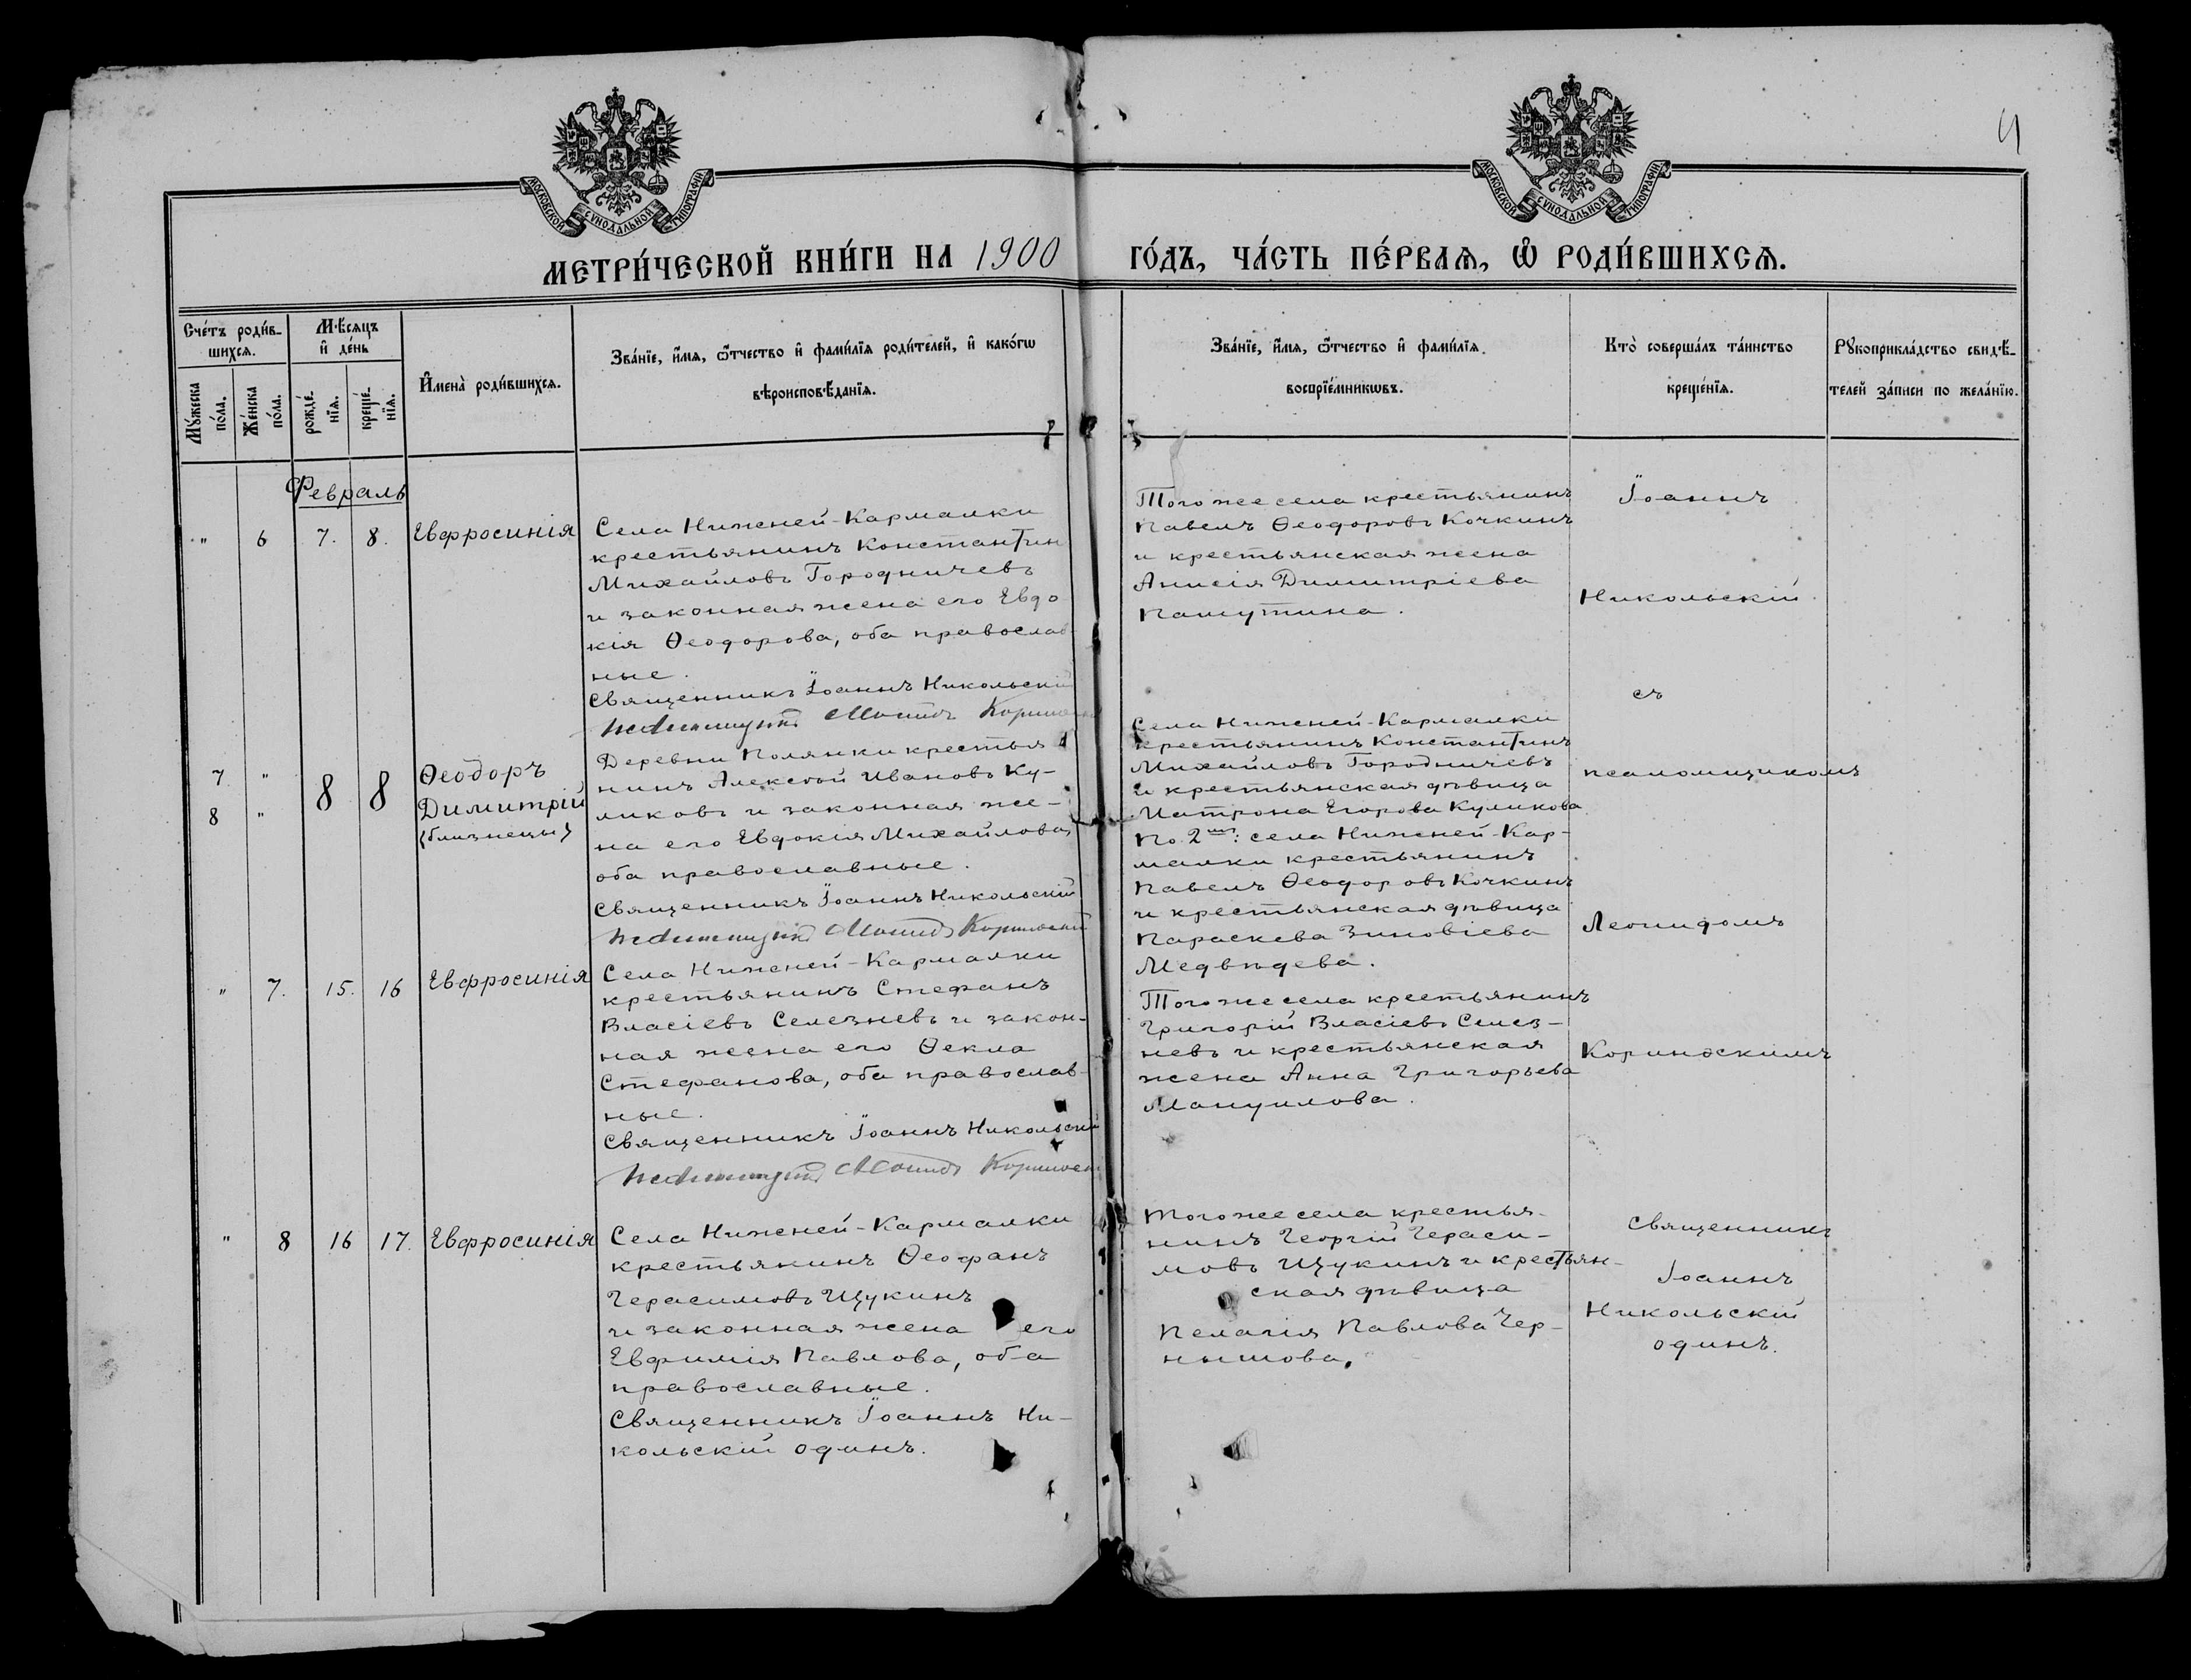 4
МОСКОВСКОЙ СУНОДАЛЬНОЙ ТИПОГРАФІИ
МОСКОВСКОЙ СУНОДАЛЬНОЙ ТИПОГРАФІИ
МЕТРИ́ЧЕСКОЙ КНИ́ГИ НА 1900 ГО́ДЪ, ЧА́СТЬ ПЕ́РВАѦ, Ѽ РОДИ́ВШИХСѦ.
Сче́тъ роди́в-
шихсѧ.
Мꙋ́жеска
по́ла.
Же́нска
по́ла.
Мѣ́сяцъ
и҆ де́нь
рожде́-
нїѧ.
креще́-
нїѧ.
И҆мена̀ роди́вшихсѧ.
Зва́нїе, и҆́мѧ, ѻ҆́тчество и҆ фами́лїѧ роди́телей, и҆ како́гѡ
вѣроисповѣ́данїѧ.
Зва́нїе, и҆́мѧ, ѻ҆́тчество и҆ фами́лїѧ
воспрїе́мникѡвъ.
Кто̀ соверша́лъ та́инство
креще́нїѧ.
Рꙋкоприкла́дство свидѣ́-
телей за́писи по жела́нїю.
Февраль
" 6 7. 8. Евфросинія
Села Нижней-Кармалки
крестьянинъ Константин
Михайловъ Городничевъ
и законная жена его Евдо
кія Ѳеодорова, оба православ
ные.
Священникъ Іоаннъ Никольскій
Псаломщикъ Леонидъ
Того же села крестьянинъ
Павелъ Ѳеодоровъ Кочкинъ
и крестьянская жена
Анисія Димитріева
Пашутина.
Іоаннъ
Никольскій
съ
псаломщикомъ
Леонидомъ
Коринѳскимъ
7 " 8 8 Ѳеодоръ
8 " Димитрій
{близнецы}
Деревни Полянки крестья
нинъ Алексѣй Ивановъ Ку-
ликовъ и законная же-
на его Евдокія Михайлова,
оба православные.
Священникъ Іоаннъ Никольскій
Псаломщикъ Леонидъ Коринѳскій
Села Нижней-Кармалки
крестьянинъ Константинъ
Михайловъ Городничевъ
и крестьянская дѣвица
Матрона Егорова Куликова
По 2мъ: села Нижней-Кар-
малки крестьянинъ
Павелъ Ѳеодоровъ Кочкинъ
и крестьянская дѣвица
Параскева Зиновіева
Медвѣдева.
" 7. 15. 16 Евфросинія
Села Нижней-Кармалки
крестьянинъ Стефанъ
Власіевъ Селезневъ и закон-
ная жена его Ѳекла
Стефанова, оба православ-
ные.
Священникъ Іоаннъ Никольскій
Псаломщикъ Леонидъ
Того же села крестьянинъ
Григорій Власіевъ Селез-
невъ и крестьянская
жена Анна Григорьева
Мануилова.
" 8 16 17. Евфросинія
Села Нижней-Кармалки
крестьянинъ Ѳеофанъ
Герасимовъ Щукинъ
и законная жена его
Евфимія Павлова, оба
православные.
Священникъ Іоаннъ Ни-
кольскій одинъ.
Того же села крестья-
нинъ Георгій Гераси-
мовъ Щукинъ и крестьян-
ская дѣвица
Пелагія Павлова Чер-
нышова.
Священникъ
Іоаннъ
Никольскій
одинъ.